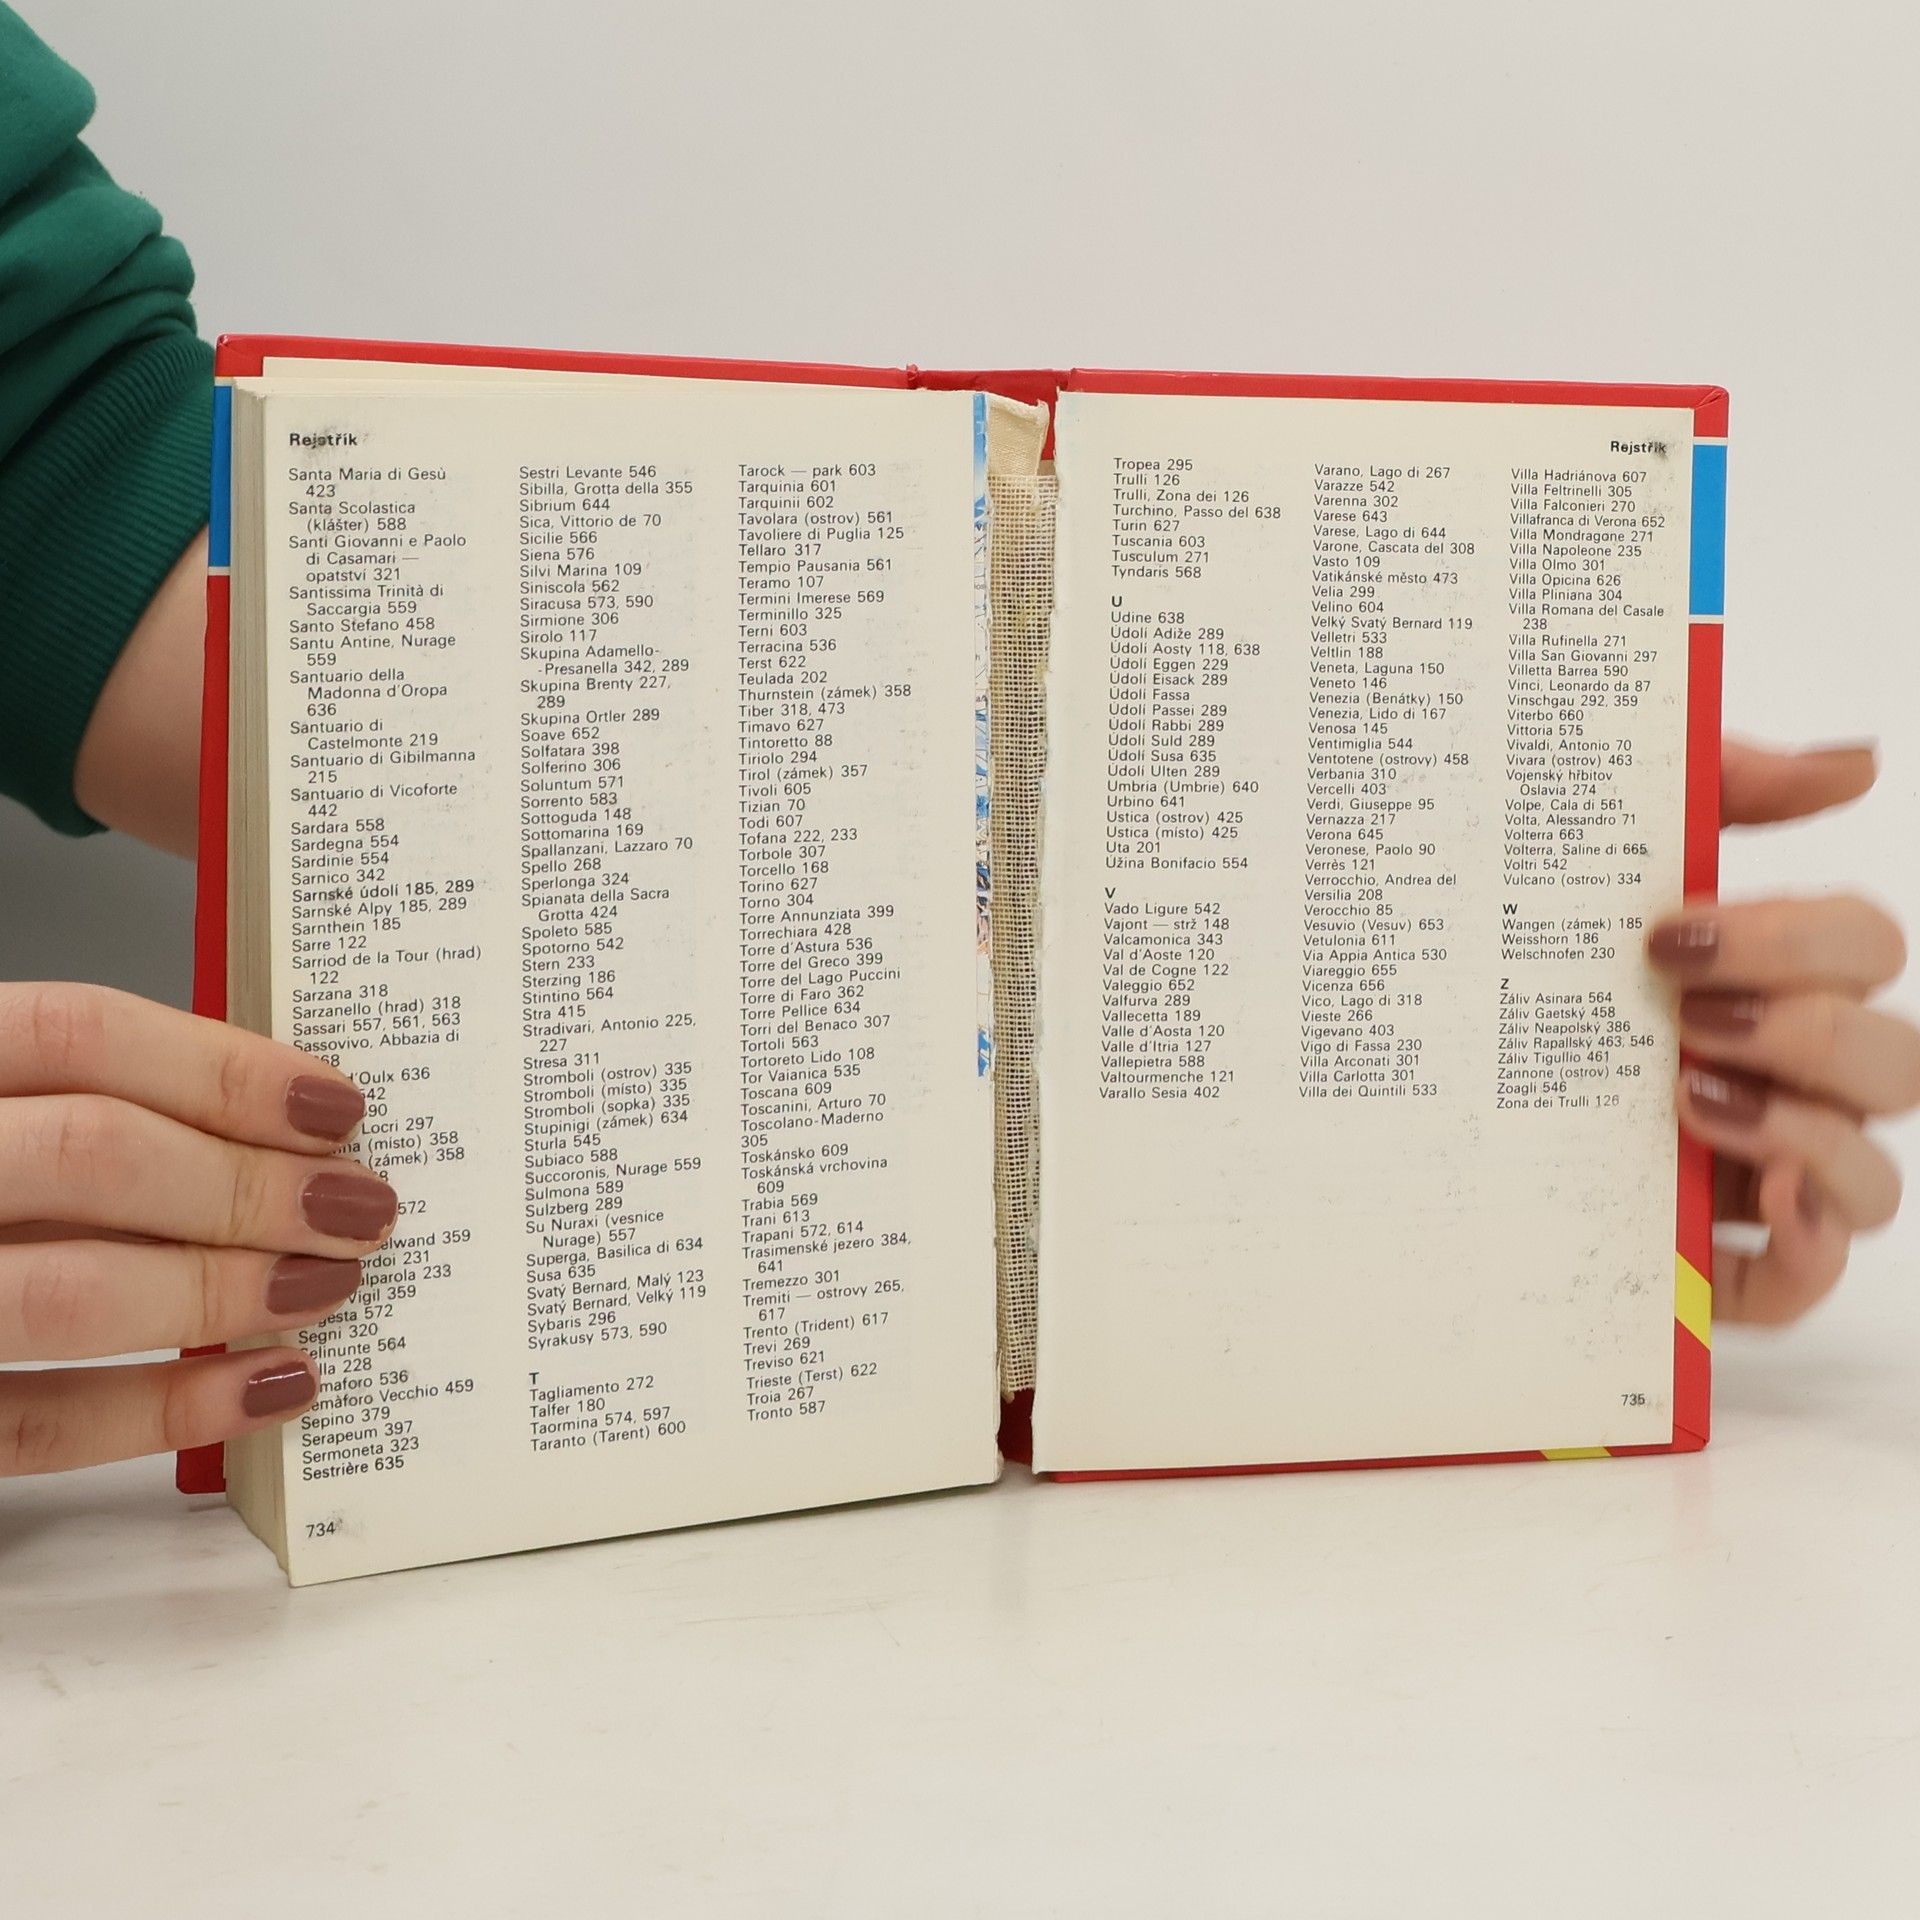 Rejstřík
Santa Maria di Gesù
423
Santa Scolastica
(klášter) 588
Santi Giovanni e Paolo
di Casamari —
opatství 321
Santissima Trinità di
Saccargia 559
Santo Stefano 458
Santu Antine, Nurage
559
Santuario della
Madonna d'Oropa
636
Santuario di
Castelmonte 219
Santuario di Gibilmanna
215
Santuario di Vicoforte
442
Sardara 558
Sardegna 554
Sardinie 554
Sarnico 342
Sarnské údolí 185, 289
Sarnské Alpy 185, 289
Sarnthein 185
Sarre 122
Sarriod de la Tour (hrad)
122
Sarzana 318
Sarzanello (hrad) 318
Sassari 557, 561, 563
Sassovivo, Abbazia di
d'Oulx 636
Locri 297
(místo) 358
(zámek) 358
572
359
231
233
Vigil 359
572
Segni 320
564
228
536
Vecchio 459
Sepino 379
Serapeum 397
Sermoneta 323
Sestrière 635
Sestri Levante 546
Sibilla, Grotta della 355
Sibrium 644
Sica, Vittorio de 70
Sicilie 566
Siena 576
Silvi Marina 109
Siniscola 562
Siracusa 573, 590
Sirmione 306
Sirolo 117
Skupina Adamello-
-Presanella 342, 289
Skupina Brenty 227,
289
Skupina Ortler 289
Soave 652
Solfatara 398
Solferino 306
Soluntum 571
Sorrento 583
Sottoguda 148
Sottomarina 169
Spallanzani, Lazzaro 70
Spello 268
Sperlonga 324
Spianata della Sacra
Grotta 424
Spoleto 585
Spotorno 542
Stern 233
Sterzing 186
Stintino 564
Stra 415
Stradivari, Antonio 225,
227
Stresa 311
Stromboli (ostrov) 335
Stromboli (místo) 335
Stromboli (sopka) 335
Stupinigi (zámek) 634
Sturla 545
Subiaco 588
Succoronis, Nurage 559
Sulmona 589
Sulzberg 289
Su Nuraxi (vesnice
Nurage) 557
Superga, Basilica di 634
Susa 635
Svatý Bernard, Malý 123
Svatý Bernard, Velký 119
Sybaris 296
Syrakusy 573, 590
T
Tagliamento 272
Talfer 180
Taormina 574, 597
Taranto (Tarent) 600
Tarock — park 603
Tarquinia 601
Tarquinii 602
Tavolara (ostrov) 561
Tavoliere di Puglia 125
Tellaro 317
Tempio Pausania 561
Teramo 107
Termini Imerese 569
Terminillo 325
Terni 603
Terracina 536
Terst 622
Teulada 202
Thurnstein (zámek) 358
Tiber 318, 473
Timavo 627
Tintoretto 88
Tiriolo 294
Tirol (zámek) 357
Tivoli 605
Tizian 70
Todi 607
Tofana 222, 233
Torbole 307
Torcello 168
Torino 627
Torno 304
Torre Annunziata 399
Torrechiara 428
Torre d'Astura 536
Torre del Greco 399
Torre del Lago Puccini
Torre di Faro 362
Torre Pellice 634
Torri del Benaco 307
Tortoli 563
Tortoreto Lido 108
Tor Vaianica 535
Toscana 609
Toscanini, Arturo 70
Toscolano-Maderno
305
Toskánsko 609
Toskánská vrchovina
609
Trabia 569
Trani 613
Trapani 572, 614
Trasimenské jezero 384,
641
Tremezzo 301
Tremiti — ostrovy 265,
617
Trento (Trident) 617
Trevi 269
Treviso 621
Trieste (Terst) 622
Troia 267
Tronto 587
734
Rejstřík
Tropea 295
Trulli 126
Trulli, Zona dei 126
Turchino, Passo del 638
Turin 627
Tuscania 603
Tusculum 271
Tyndaris 568
U
Udine 638
Údolí Adiže 289
Údolí Aosty 118, 638
Údolí Eggen 229
Údolí Eisack 289
Údolí Fassa
Údolí Passei 289
Údolí Rabbi 289
Údolí Suld 289
Údolí Susa 635
Údolí Ulten 289
Umbria (Umbrie) 640
Urbino 641
Ustica (ostrov) 425
Ustica (místo) 425
Uta 201
Úžina Bonifacio 554
V
Vado Ligure 542
Vajont — strž 148
Valcamonica 343
Val d'Aoste 120
Val de Cogne 122
Valeggio 652
Valfurva 289
Vallecetta 189
Valle d'Aosta 120
Valle d'Itria 127
Vallepietra 588
Valtourmenche 121
Varallo Sesia 402
Varano, Lago di 267
Varazze 542
Varenna 302
Varese 643
Varese, Lago di 644
Varone, Cascata del 308
Vasto 109
Vatikánské město 473
Velia 299
Velino 604
Velký Svatý Bernard 119
Velletri 533
Veltlin 188
Veneta, Laguna 150
Veneto 146
Venezia (Benátky) 150
Venezia, Lido di 167
Venosa 145
Ventimiglia 544
Ventotene (ostrovy) 458
Verbania 310
Vercelli 403
Verdi, Giuseppe 95
Vernazza 217
Verona 645
Veronese, Paolo 90
Verrès 121
Verrocchio, Andrea del
Versilia 208
Verocchio 85
Vesuvio (Vesuv) 653
Vetulonia 611
Via Appia Antica 530
Viareggio 655
Vicenza 656
Vico, Lago di 318
Vieste 266
Vigevano 403
Vigo di Fassa 230
Villa Arconati 301
Villa Carlotta 301
Villa dei Quintili 533
Villa Hadriánova 607
Villa Feltrinelli 305
Villa Falconieri 270
Villafranca di Verona 652
Villa Mondragone 271
Villa Napoleone 235
Villa Olmo 301
Villa Opicina 626
Villa Pliniana 304
Villa Romana del Casale
238
Villa Rufinella 271
Villa San Giovanni 297
Villetta Barrea 590
Vinci, Leonardo da 87
Vinschgau 292, 359
Viterbo 660
Vittoria 575
Vivaldi, Antonio 70
Vivara (ostrov) 463
Vojenský hřbitov
Oslavia 274
Volpe, Cala di 561
Volta, Alessandro 71
Volterra 663
Volterra, Saline di 665
Voltri 542
Vulcano (ostrov) 334
W
Wangen (zámek) 185
Weisshorn 186
Welschnofen 230
Z
Záliv Asinara 564
Záliv Gaetský 458
Záliv Neapolský 386
Záliv Rapallský 463, 546
Záliv Tigullio 461
Zannone (ostrov) 458
Zoagli 546
Zona dei Trulli 126
735